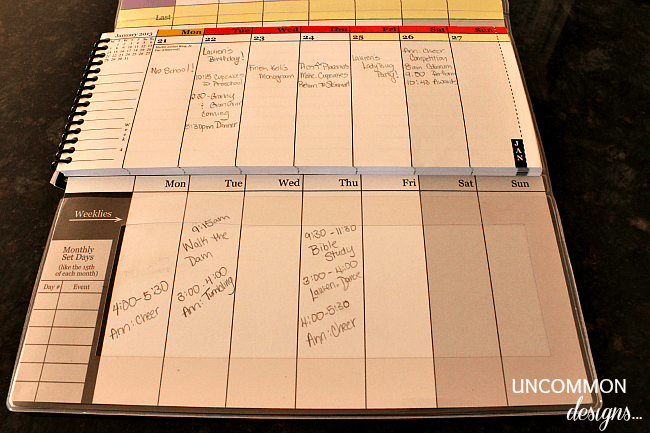 Last
January 2013
Mon Tue Wed Thu Fri Sat Sun
21 22 23 24 25 26 27
No School!
Lauren's
Birthday!
10:15 Cupcakes
to Preschool
2:30 - Granny
coming
5:30pm Dinner
Finish
Monogram
Make Cupcakes
Return
Lauren's
LadyBug
Party!
Ann: Cheer
Competition
8am
9:50 Perform
10:45 Awards
JAN
Mon Tue Wed Thu Fri Sat Sun
Weeklies
Monthly
Set Days
(like the 15th
of each month)
Day # Event
4:00-5:30
Ann: Cheer
9:15am
Walk the
Dam
3:00-4:00
Ann: Tumbling
9:30-11:30
Bible
Study
3:00-4:00
Lauren: Dance
4:00-5:30
Ann: Cheer
UNCOMMON
designs...